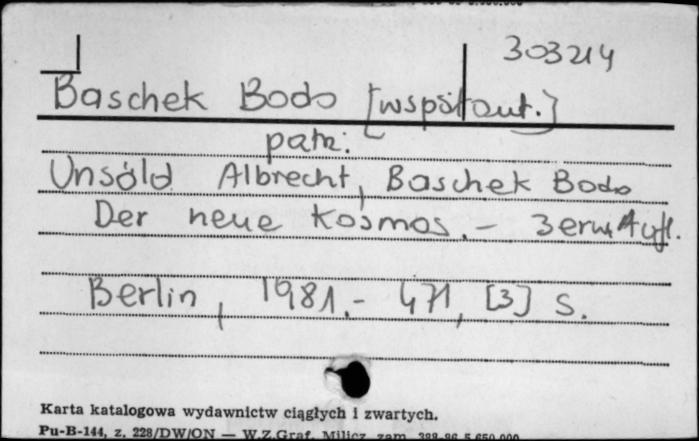 303214
Baschek Bodo [współaut.]
patrz:
Unsöld Albrecht, Baschek Bodo
Der neue Kosmos. - 3 erw. Aufl.
Berlin, 1981. - 471, [3] S.
Karta katalogowa wydawnictw ciągłych i zwartych.
Pu-B-144, z. 228/DW/ON — W.Z.Graf. Milicz zam.